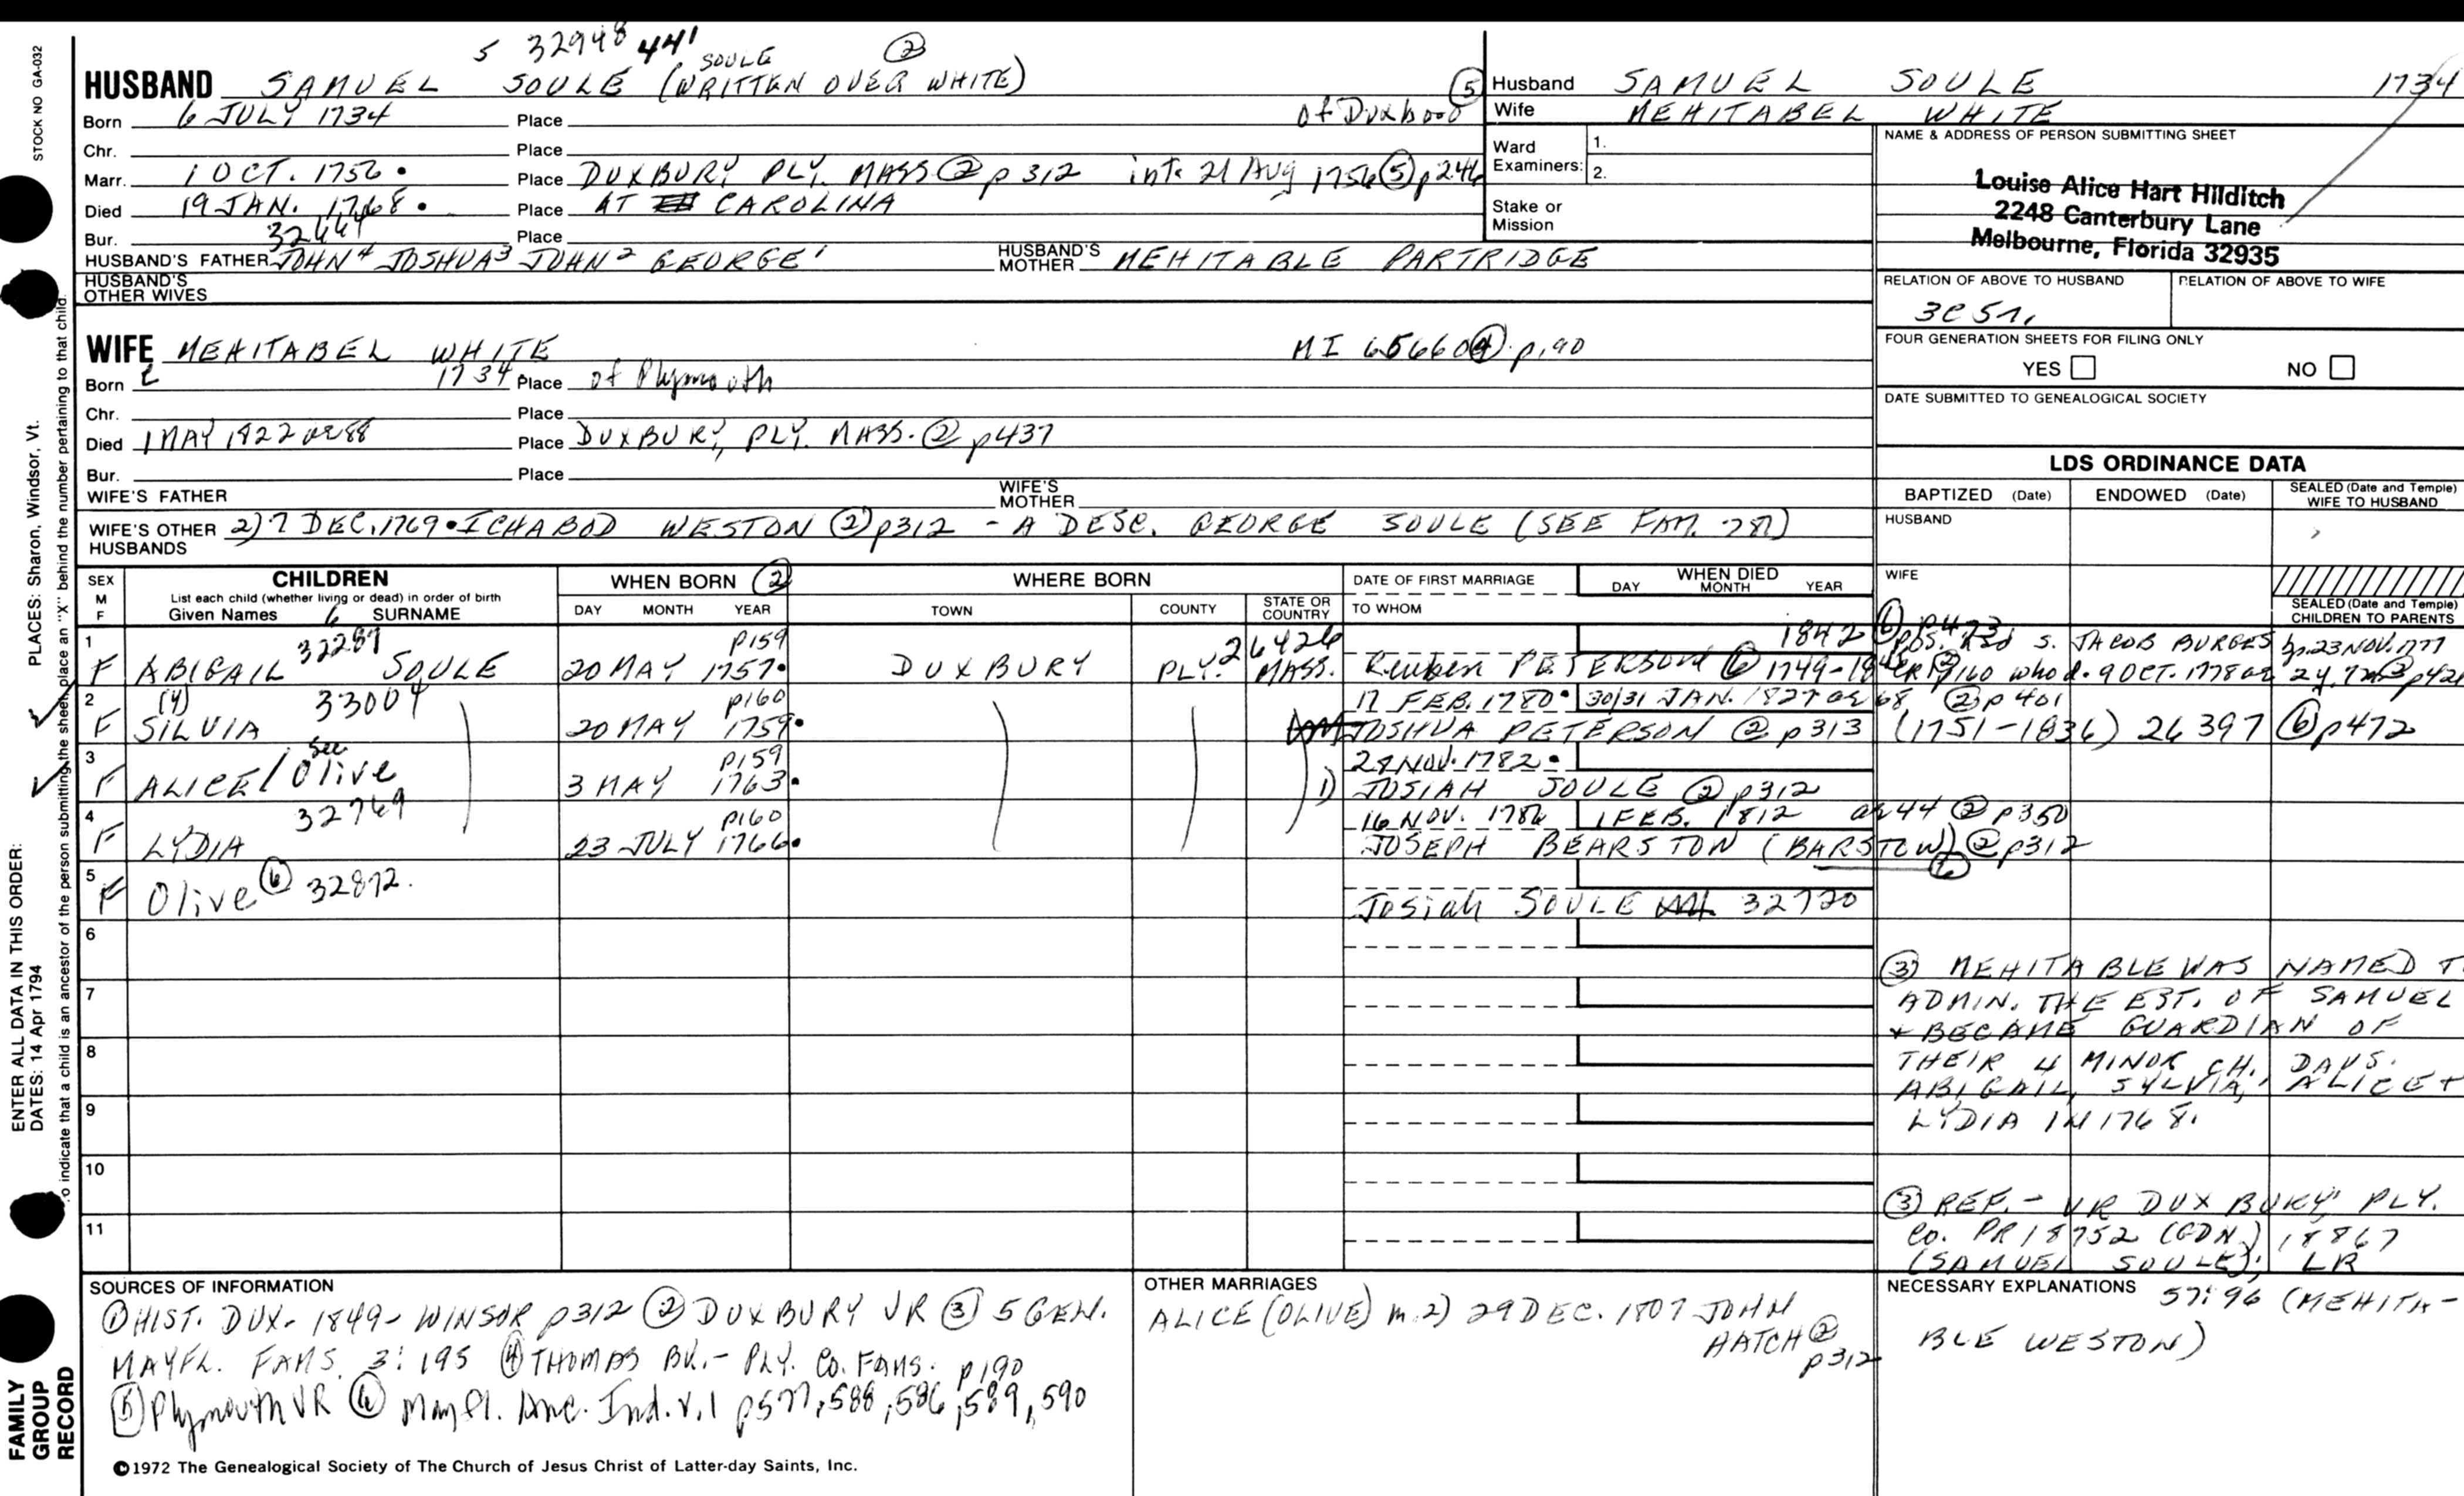 5 32948 441 SOULE ②
HUSBAND SAMUEL SOULE (WRITTEN OVER WHITE)
Born 6 JULY 1734 Place of Duxboro ⑤
Chr. Place
Marr. 1 OCT. 1756 • Place DUXBURY PLY. MASS ② p 312 int. 21 Aug 1756 ⑤ p 246
Died 19 JAN. 1768 • Place AT CAROLINA
Bur. 32441 Place
HUSBAND'S FATHER JOHN⁴ JOSHUA³ JOHN² GEORGE¹ HUSBAND'S MOTHER MEHITABLE PARTRIDGE
HUSBAND'S OTHER WIVES
WIFE MEHITABEL WHITE MI 65660 ④ p. 90
Born c 1734 Place of Plymouth
Chr. Place
Died 1 MAY 1822 ae 88 Place DUXBURY, PLY. MASS. ② p437
Bur. Place
WIFE'S FATHER WIFE'S MOTHER
WIFE'S OTHER HUSBANDS 2) 7 DEC. 1769 • ICHABOD WESTON ② p312 - A DESC. GEORGE SOULE (SEE FAM. 281)
Husband SAMUEL SOULE 1734
Wife MEHITABEL WHITE
Ward Examiners: 1.
2.
Stake or Mission
NAME & ADDRESS OF PERSON SUBMITTING SHEET
Louise Alice Hart Hilditch
2248 Canterbury Lane
Melbourne, Florida 32935
RELATION OF ABOVE TO HUSBAND RELATION OF ABOVE TO WIFE
3C 5r.
FOUR GENERATION SHEETS FOR FILING ONLY
YES NO
DATE SUBMITTED TO GENEALOGICAL SOCIETY
LDS ORDINANCE DATA
BAPTIZED (Date) ENDOWED (Date) SEALED (Date and Temple) WIFE TO HUSBAND
HUSBAND
WIFE
SEALED (Date and Temple) CHILDREN TO PARENTS
SEX M F CHILDREN WHEN BORN ② WHERE BORN DATE OF FIRST MARRIAGE WHEN DIED
List each child (whether living or dead) in order of birth DAY MONTH YEAR TOWN COUNTY STATE OR COUNTRY TO WHOM DAY MONTH YEAR
Given Names 6 SURNAME
1 32287 p159 26426 1842 ⑥ p473
F ABIGAIL SOULE 20 MAY 1757 • DUXBURY PLY. MASS. Reuben PETERSON ⑥ 1749-
POS. had S. JACOB BURGES b. 23 NOV. 1777
p160 who d. 9 OCT. 1778 ae 24.
2 (4) 33004 p160 17 FEB. 1780 • 30/31 JAN. 1827 ae 68 ② p 401
F SILVIA 20 MAY 1759 • JOSHUA PETERSON ② p313 (1751-1836) 26397 ⑥ p472
3 See p159 28 NOV. 1782 •
F ALICE / Olive 3 MAY 1763 • 1) JOSIAH SOULE ② p312
4 32769 p160 16 NOV. 1786 1 FEB. 1812 ae 44 ② p350
F LYDIA 23 JULY 1766 • JOSEPH BEARSTON (BARSTOW) ② p312
⑥
5 F Olive ⑥ 32872. Josiah SOULE 32720
6
7
8
9
10
11
③ MEHITABLE WAS NAMED T
ADMIN. THE EST. OF SAMUEL
+ BECAME GUARDIAN OF
THEIR 4 MINOR CH. DAUS.
ABIGAIL, SYLVIA, ALICE +
LYDIA IN 1768.
③ REF. - VR DUXBURY; PLY.
CO. PR 18752 (GDN) 18867
(SAMUEL SOULE); LR
NECESSARY EXPLANATIONS 57:96 (MEHITA-
BLE WESTON)
SOURCES OF INFORMATION
① HIST. DUX. 1849 - WINSOR p312 ② DUXBURY VR ③ 5 GEN.
MAYFL. FAMS. 3:195 ④ THOMAS BK. - PLY. CO. FAMS. p190
⑤ Plymouth VR ⑥ Mayfl. Anc. Ind. v.1 p577, 588, 586, 589, 590
OTHER MARRIAGES
ALICE (OLIVE) m. 2) 29 DEC. 1807 JOHN
HATCH ②
p312
©1972 The Genealogical Society of The Church of Jesus Christ of Latter-day Saints, Inc.
STOCK NO GA-032
PLACES: Sharon, Windsor, Vt.
ENTER ALL DATA IN THIS ORDER:
DATES: 14 Apr 1794
o indicate that a child is an ancestor of the person submitting the sheet, place an "X" behind the number pertaining to that child.
FAMILY
GROUP
RECORD